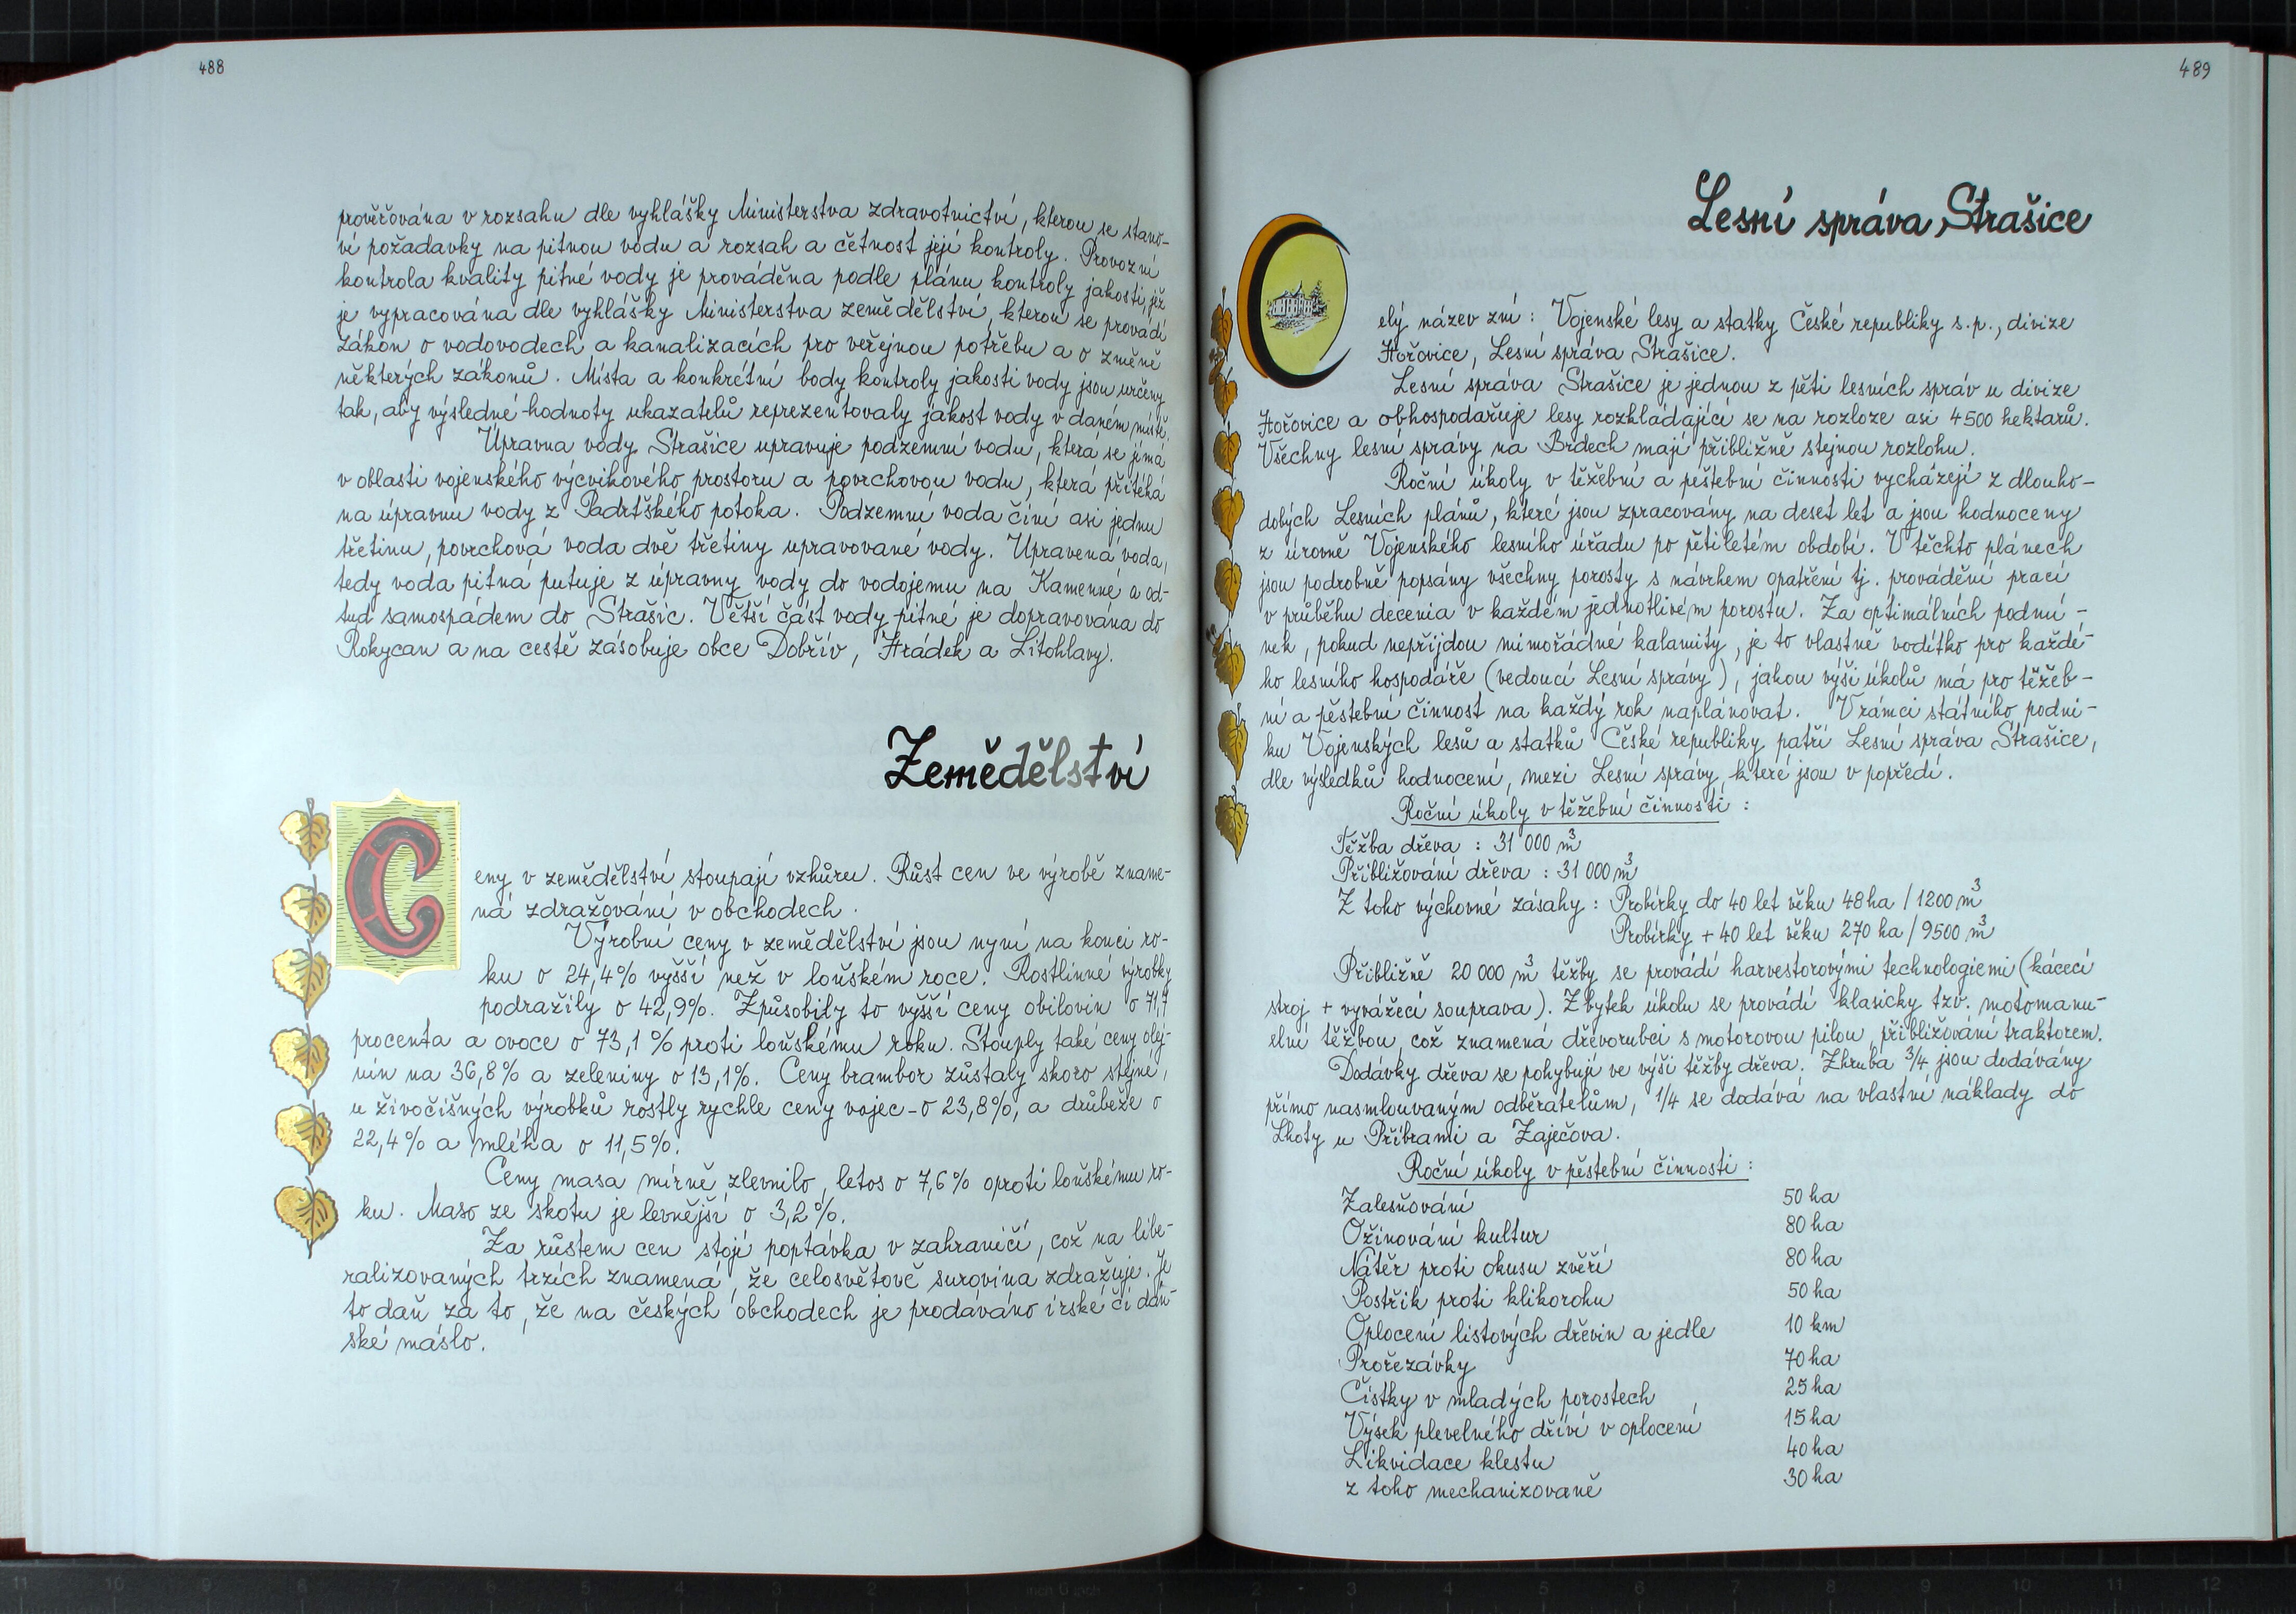 488
prověřována v rozsahu dle vyhlášky Ministerstva zdravotnictví, kterou se stano-
ví požadavky na pitnou vodu a rozsah a četnost její kontroly. Provozní
kontrola kvality pitné vody je prováděna podle plánu kontroly jakosti, jež
je vypracována dle vyhlášky Ministerstva zemědělství, kterou se provádí
zákon o vodovodech a kanalizacích pro veřejnou potřebu a o změně
některých zákonů. Místa a konkrétní body kontroly jakosti vody jsou určeny
tak, aby výsledné hodnoty ukazatelů reprezentovaly jakost vody v daném místě.
Úpravna vody Strašice upravuje podzemní vodu, která se jímá
v oblasti vojenského výcvikového prostoru a povrchovou vodu, která přitéká
na úpravnu vody z Padrťského potoka. Podzemní voda činí asi jednu
třetinu, povrchová voda dvě třetiny upravované vody. Upravená voda,
tedy voda pitná putuje z úpravny vody do vodojemu na Kamenné a od-
tud samospádem do Strašic. Větší část vody pitné je dopravována do
Rokycan a na cestě zásobuje obce Dobřív, Hrádek a Litohlavy.
Zemědělství
Ceny v zemědělství stoupají vzhůru. Růst cen ve výrobě zname-
ná zdražování v obchodech.
Výrobní ceny v zemědělství jsou nyní na konci ro-
ku o 24,4% vyšší než v loňském roce. Rostlinné výrobky
podražily o 42,9%. Způsobily to vyšší ceny obilovin o 71,7
procenta a ovoce o 73,1 % proti loňskému roku. Stouply také ceny olej-
nin na 36,8% a zeleniny o 13,1%. Ceny brambor zůstaly skoro stejné,
u živočišných výrobků rostly rychle ceny vajec - o 23,8%, a drůbeže o
22,4% a mléka o 11,5%.
Ceny masa mírně zlevnilo, letos o 7,6% oproti loňskému ro-
ku. Maso ze skotu je levnější o 3,2%.
Za růstem cen stojí poptávka v zahraničí, což na libe-
ralizovaných trzích znamená, že celosvětově surovina zdražuje. Je
to daň za to, že na českých obchodech je prodáváno irské či dán-
ské máslo.
489
Lesní správa Strašice
Celý název zní: Vojenské lesy a statky České republiky s.p., divize
Hořovice, Lesní správa Strašice.
Lesní správa Strašice je jednou z pěti lesních správ u divize
Hořovice a obhospodařuje lesy rozkládající se na rozloze asi 4500 hektarů.
Všechny lesní správy na Brdech mají přibližně stejnou rozlohu.
Roční úkoly v těžební a pěstební činnosti vycházejí z dlouho-
dobých Lesních plánů, které jsou zpracovány na deset let a jsou hodnoceny
z úrovně Vojenského lesního úřadu po pětiletém období. V těchto plánech
jsou podrobně popsány všechny porosty s návrhem opatření tj. provádění prací
v průběhu decenia v každém jednotlivém porostu. Za optimálních podmí-
nek, pokud nepřijdou mimořádné kalamity, je to vlastně vodítko pro každé-
ho lesního hospodáře (vedoucí Lesní správy), jakou výši úkolů má pro těžeb-
ní a pěstební činnost na každý rok naplánovat. V rámci státního podni-
ku Vojenských lesů a statků České republiky patří Lesní správa Strašice,
dle výsledků hodnocení, mezi Lesní správy, které jsou v popředí.
Roční úkoly v těžební činnosti:
Těžba dřeva : 31 000 m³
Přibližování dřeva : 31 000 m³
Z toho výchovné zásahy : Probírky do 40 let věku 48 ha / 1200 m³
Probírky + 40 let věku 270 ha / 9500 m³
Přibližně 20 000 m³ těžby se provádí harvestorovými technologiemi (kácecí
stroj + vyvážecí souprava). Zbytek úkolu se provádí klasicky tzv. motomanu-
elní těžbou, což znamená dřevorubci s motorovou pilou, přibližování traktorem.
Dodávky dřeva se pohybují ve výši těžby dřeva. Zhruba 3/4 jsou dodávány
přímo nasmlouvaným odběratelům, 1/4 se dodává na vlastní náklady do
Lhoty u Příbrami a Zaječova.
Roční úkoly v pěstební činnosti:
Zalesňování 50 ha
Ožínování kultur 80 ha
Nátěr proti okusu zvěří 80 ha
Postřik proti klikorohu 50 ha
Oplocení listových dřevin a jedle 10 km
Prořezávky 70 ha
Čistky v mladých porostech 25 ha
Výsek plevelného dříví v oplocení 15 ha
Likvidace klestu 40 ha
z toho mechanizovaně 30 ha